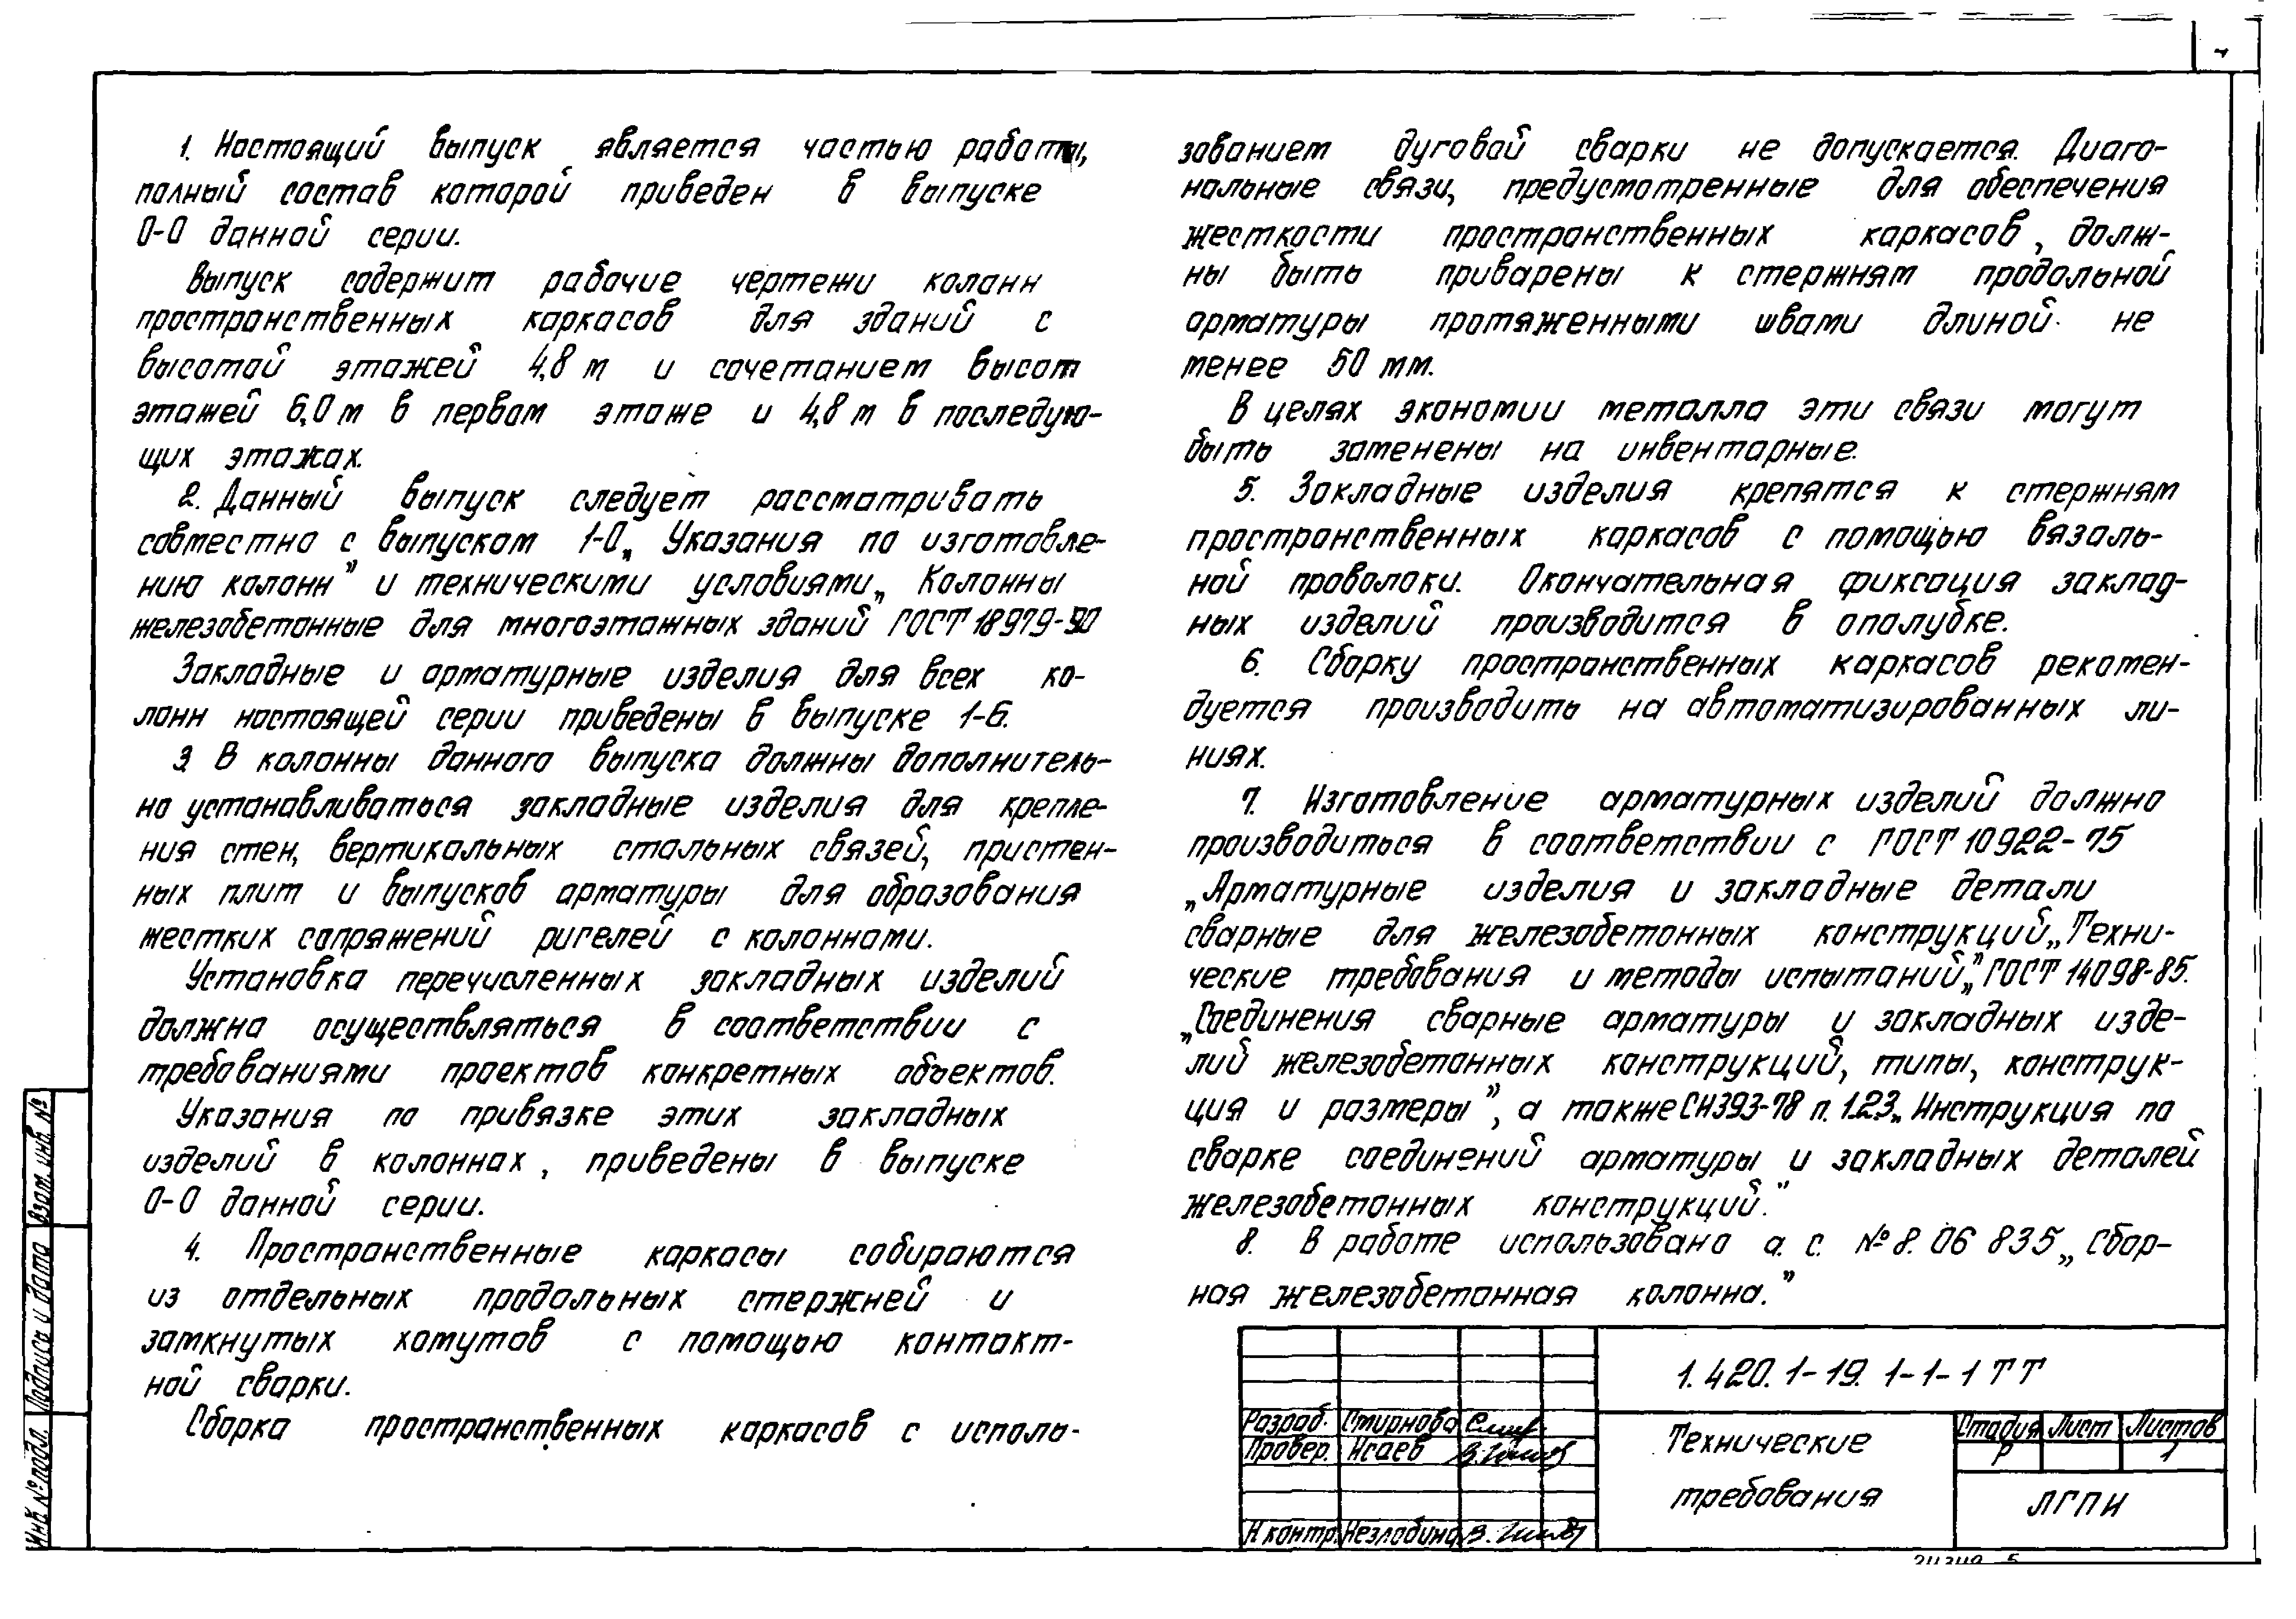 1. Настоящий выпуск является частью работы,
полный состав которой приведен в выпуске
0-0 данной серии.
Выпуск содержит рабочие чертежи колонн
пространственных каркасов для зданий с
высотой этажей 4,8 м и сочетанием высот
этажей 6,0 м в первом этаже и 4,8 м в последую-
щих этажах.
2. Данный выпуск следует рассматривать
совместно с выпуском 1-0 „Указания по изготовле-
нию колонн" и техническими условиями „Колонны
железобетонные для многоэтажных зданий ГОСТ 18979-90
Закладные и арматурные изделия для всех ко-
лонн настоящей серии приведены в выпуске 1-6.
3. В колонны данного выпуска должны дополнитель-
но устанавливаться закладные изделия для крепле-
ния стен, вертикальных стальных связей, пристен-
ных плит и выпусков арматуры для образования
жестких сопряжений ригелей с колоннами.
Установка перечисленных закладных изделий
должна осуществляться в соответствии с
требованиями проектов конкретных объектов.
Указания по привязке этих закладных
изделий в колоннах, приведены в выпуске
0-0 данной серии.
4. Пространственные каркасы собираются
из отдельных продольных стержней и
замкнутых хомутов с помощью контакт-
ной сварки.
Сборка пространственных каркасов с исполь-
зованием дуговой сварки не допускается. Диаго-
нальные связи, предусмотренные для обеспечения
жесткости пространственных каркасов, долж-
ны быть приварены к стержням продольной
арматуры протяженными швами длиной не
менее 50 мм.
В целях экономии металла эти связи могут
быть заменены на инвентарные.
5. Закладные изделия крепятся к стержням
пространственных каркасов с помощью вязаль-
ной проволоки. Окончательная фиксация заклад-
ных изделий производится в опалубке.
6. Сборку пространственных каркасов рекомен-
дуется производить на автоматизированных ли-
ниях.
7. Изготовление арматурных изделий должно
производиться в соответствии с ГОСТ 10922-75
„Арматурные изделия и закладные детали
сварные для железобетонных конструкций „Техни-
ческие требования и методы испытаний," ГОСТ 14098-85.
„Соединения сварные арматуры и закладных изде-
лий железобетонных конструкций, типы, конструк-
ция и размеры", а также СН393-78 п. 1.23 „Инструкция по
сварке соединений арматуры и закладных деталей
железобетонных конструкций."
8. В работе использована а. с. № 8. 06 835 „Сбор-
ная железобетонная колонна."
1. 420. 1-19. 1-1-1 ТТ
Разраб. Смирнова
Провер. Исаев
Н контр. Незлобина
Технические
требования
Стадия Лист Листов
Р 1
ЛГПИ
Взам. инв. №
Подпись и дата
Инв. № подл.